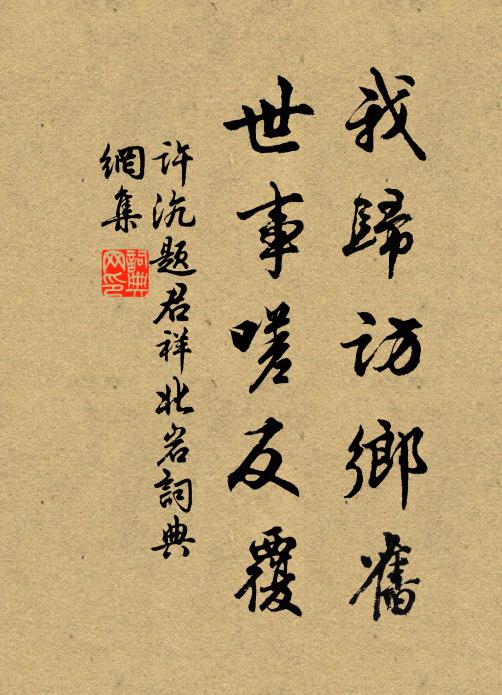 我歸訪鄉舊
世事嗟反覆
許沉題君祥北岩詞典
網集
詞典網印